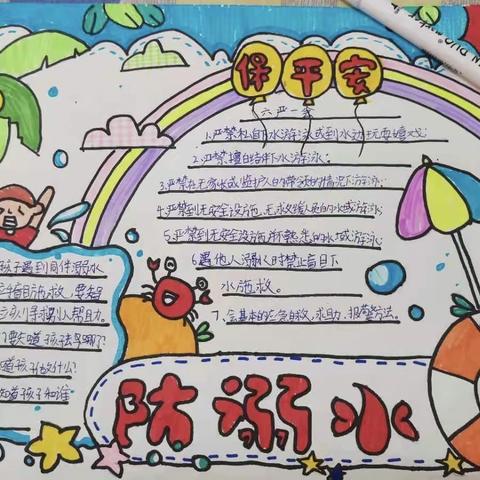 保平安
六严一会
1.严禁私自下水游泳或到水边玩耍嬉戏
2.严禁擅自结伴下水游泳.
3.严禁在无家长或监护人的带领的情况下游泳.
4.严禁到无安全设施,无救援人员的水域游泳
5.严禁到无安全设施,不熟悉的水域游泳
6.遇他人溺水时禁止盲目下
水施救。
7、会基本的自救,求助,报警方法。
孩子遇到同伴溺水
盲目施救,要智
寻求大人帮助.
要知道孩子去哪了?
知道孩子为什么?
知道孩子和谁
防溺水